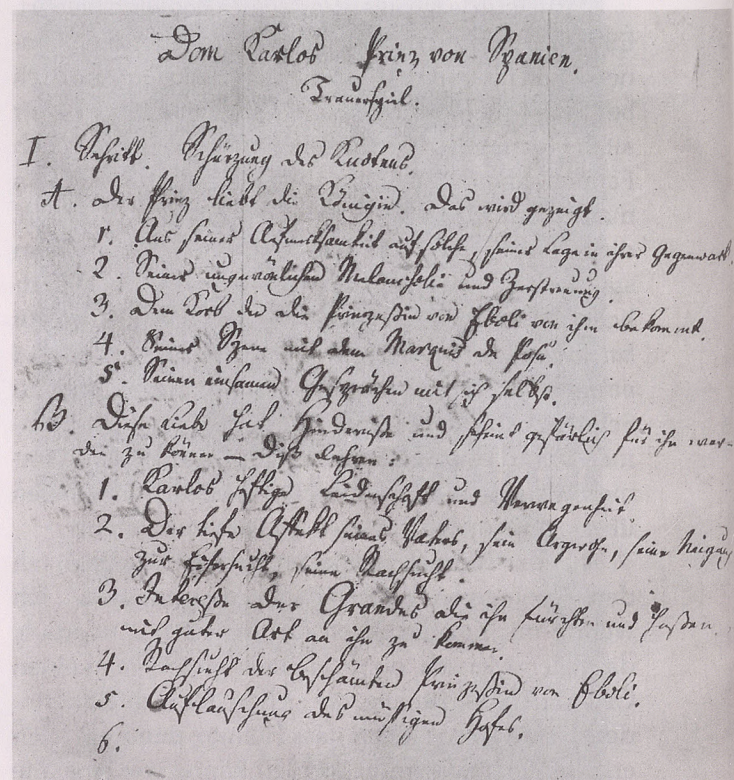 Dom Karlos Prinz von Spanien.
Trauerspiel.
I. Schritt. Schürzung des Knotens.
A. Der Prinz liebt die Königin. Das wird gezeigt.
1. Aus seiner Aufmerksamkeit auf solche, seiner Lage in ihrer Gegenwart.
2. Seiner ungewönlichen Melancholie und Zerstreuung.
3. Dem Korb den die Prinzeßin von Eboli von ihm bekommt.
4. Seiner Szene mit dem Marquis de Posa.
5. Seinen einsamen Gesprächen mit sich selbst.
B. Diese Liebe hat Hinderniße und scheint gefärlich für ihn wer-
den zu können — Diß lehren:
1. Karlos heftige Leidenschaft und Verwegenheit.
2. Der tiefe Affekt seines Vaters, sein Argwohn, seine Neigung
zur Eifersucht, seine Rachsucht.
3. Intereße der Grandes die ihn fürchten und haßen,
mit guter Art an ihn zu kommen.
4. Rachsucht der beschämten Prinzeßin von Eboli.
5. Auflauschung des müßigen Hofes.
6.